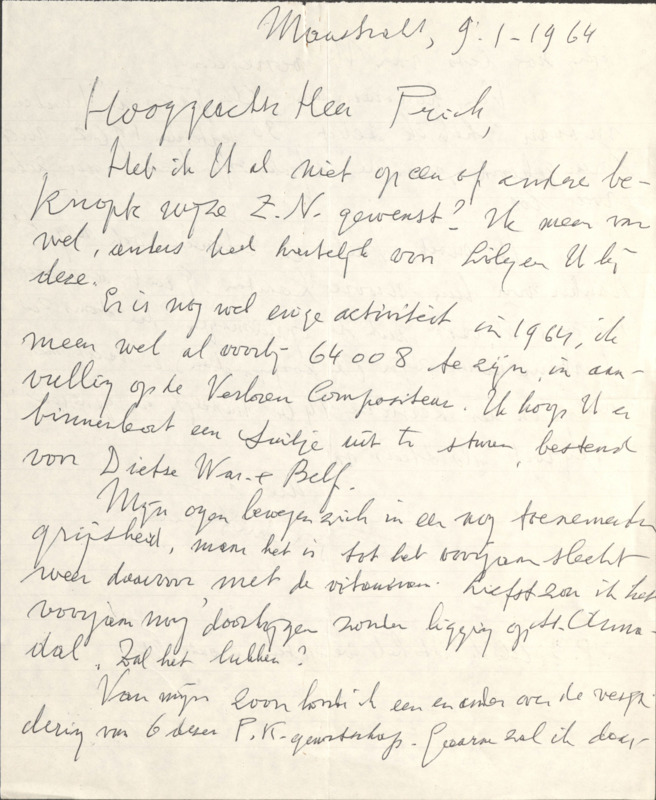 Maastricht, 9-1-1964
Hooggeachte Heer Prick,
Heb ik U al niet op een of andere be-
knopte wijze Z.N. gewenst? Ik meen van
wel, anders heel hartelijk van U bij
deze.
Er is nog wel enige activiteit in 1964, ik
meen wel al voorbij 64008 te zijn, in aan-
vulling op de Verloren Compositeur. Ik hoop U er
binnenkort een uit te sturen, bestemd
voor Dietse War. & Belf.
Mijn ogen bewegen zich in een nog toenemende
grijsheid, maar het is tot het voorjaar slecht
weer daarvoor, met de vitaminen. Liefst zou ik het
voorjaar nog doorleggen zonder ligging op St. Anna-
dal. Zal het lukken?
Van mijn zoon hoorde ik een en ander over de verga-
dering van 6 dezer P.K.-genootschap. Gaarne zal ik daar-